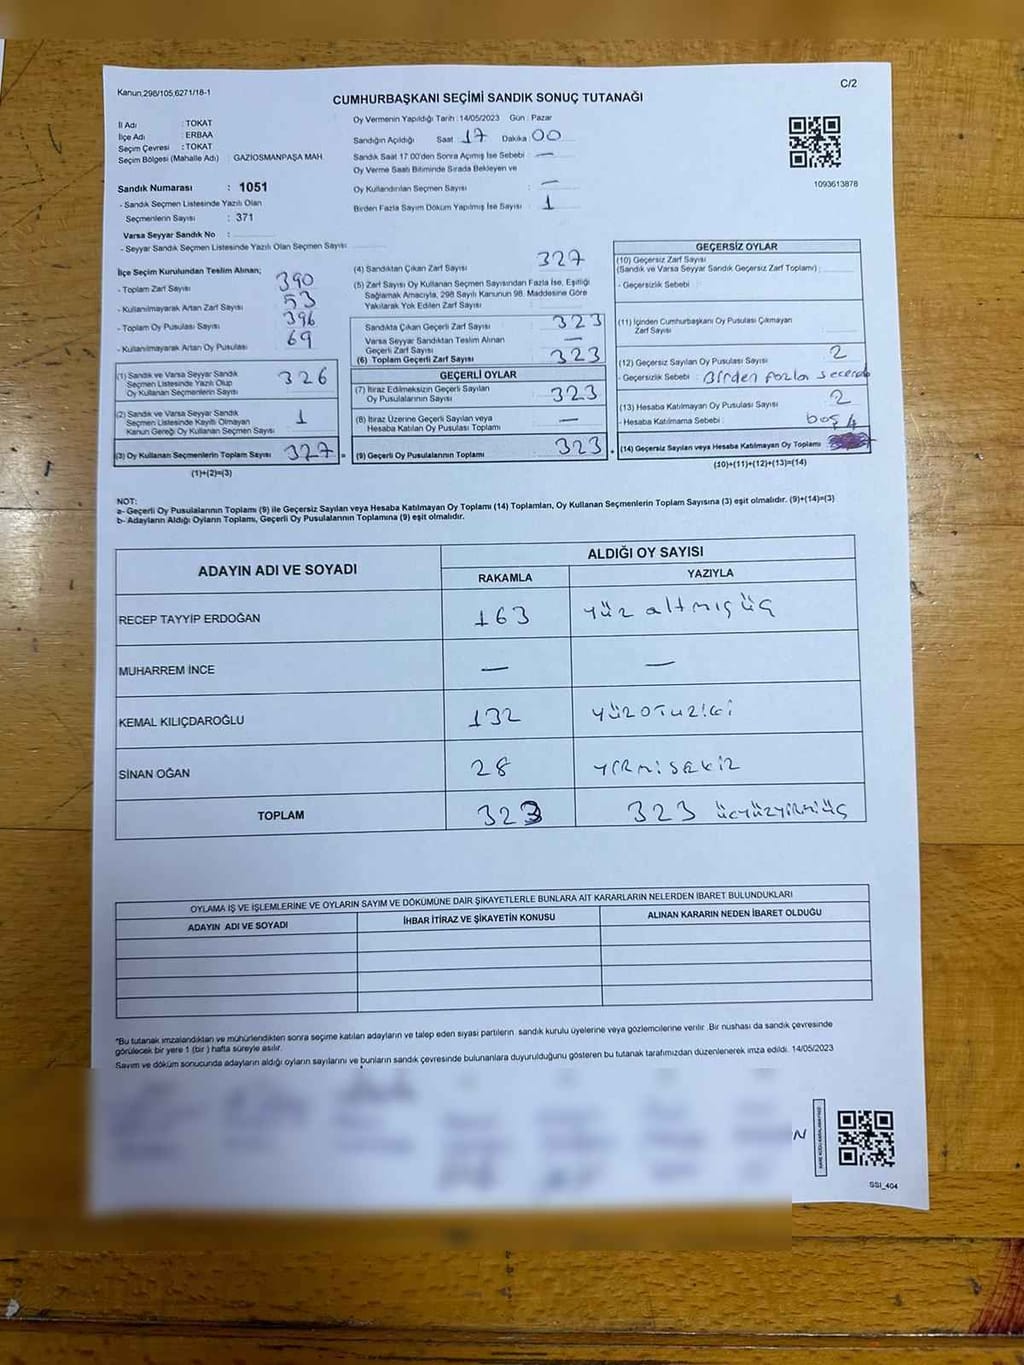 Kanun,298/105,6271/18-1
C/2
CUMHURBAŞKANI SEÇİMİ SANDIK SONUÇ TUTANAĞI
İl Adı : TOKAT
İlçe Adı : ERBAA
Seçim Çevresi : TOKAT
Seçim Bölgesi (Mahalle Adı) GAZİOSMANPAŞA MAH.
Sandık Numarası : 1051
- Sandık Seçmen Listesinde Yazılı Olan
Seçmenlerin Sayısı : 371
Varsa Seyyar Sandık No :
- Seyyar Sandık Seçmen Listesinde Yazılı Olan Seçmen Sayısı
Oy Vermenin Yapıldığı Tarih : 14/05/2023 Gün : Pazar
Sandığın Açıldığı Saat 17 Dakika 00
Sandık Saat 17.00'den Sonra Açımış İse Sebebi : —
Oy Verme Saati Bitiminde Sırada Bekleyen ve
Oy Kullandırılan Seçmen Sayısı : —
Birden Fazla Sayım Döküm Yapılmış İse Sayısı : 1
1093613878
İlçe Seçim Kurulundan Teslim Alınan;
- Toplam Zarf Sayısı 390
- Kullanılmayarak Artan Zarf Sayısı 53
- Toplam Oy Pusulası Sayısı 396
- Kullanılmayarak Artan Oy Pusulası 69
(1) Sandık ve Varsa Seyyar Sandık
Seçmen Listesinde Yazılı Olup
Oy Kullanan Seçmenlerin Sayısı 326
(2) Sandık ve Varsa Seyyar Sandık
Seçmen Listesinde Kayıtlı Olmayan
Kanun Gereği Oy Kullanan Seçmen Sayısı 1
(3) Oy Kullanan Seçmenlerin Toplam Sayısı 327 =
(1)+(2)=(3)
(4) Sandıktan Çıkan Zarf Sayısı 327
(5) Zarf Sayısı Oy Kullanan Seçmen Sayısından Fazla İse, Eşitliği
Sağlamak Amacıyla, 298 Sayılı Kanunun 98. Maddesine Göre
Yakılarak Yok Edilen Zarf Sayısı
Sandıkta Çıkan Geçerli Zarf Sayısı 323
Varsa Seyyar Sandıktan Teslim Alınan
Geçerli Zarf Sayısı —
(6) Toplam Geçerli Zarf Sayısı 323
GEÇERLİ OYLAR
(7) İtiraz Edilmeksizin Geçerli Sayılan
Oy Pusulalarının Sayısı 323
(8) İtiraz Üzerine Geçerli Sayılan veya
Hesaba Katılan Oy Pusulası Toplamı —
(9) Geçerli Oy Pusulalarının Toplamı 323
GEÇERSİZ OYLAR
(10) Geçersiz Zarf Sayısı
(Sandık ve Varsa Seyyar Sandık Geçersiz Zarf Toplamı) :
- Geçersizlik Sebebi
(11) İçinden Cumhurbaşkanı Oy Pusulası Çıkmayan
Zarf Sayısı
(12) Geçersiz Sayılan Oy Pusulası Sayısı 2
- Geçersizlik Sebebi : Birden fazla
(13) Hesaba Katılmayan Oy Pusulası Sayısı 2
- Hesaba Katılmama Sebebi : boş 4
(14) Geçersiz Sayılan veya Hesaba Katılmayan Oy Toplamı
(10)+(11)+(12)+(13)=(14)
NOT:
a- Geçerli Oy Pusulalarının Toplamı (9) ile Geçersiz Sayılan veya Hesaba Katılmayan Oy Toplamı (14) Toplamları, Oy Kullanan Seçmenlerin Toplam Sayısına (3) eşit olmalıdır. (9)+(14)=(3)
b- Adayların Aldığı Oyların Toplamı, Geçerli Oy Pusulalarının Toplamına (9) eşit olmalıdır.
ADAYIN ADI VE SOYADI
ALDIĞI OY SAYISI
RAKAMLA YAZIYLA
RECEP TAYYİP ERDOĞAN 163 yüz altmış üç
MUHARREM İNCE — —
KEMAL KILIÇDAROĞLU 132 yüzotuziki
SİNAN OĞAN 28 yirmisekiz
TOPLAM 323 323 üçyüzyirmiüç
OYLAMA İŞ VE İŞLEMLERİNE VE OYLARIN SAYIM VE DÖKÜMÜNE DAİR ŞİKAYETLERLE BUNLARA AİT KARARLARIN NELERDEN İBARET BULUNDUKLARI
ADAYIN ADI VE SOYADI İHBAR İTİRAZ VE ŞİKAYETİN KONUSU ALINAN KARARIN NEDEN İBARET OLDUĞU
*Bu tutanak imzalandıktan ve mühürlendikten sonra seçime katılan adayların ve talep eden siyasi partilerin sandık kurulu üyelerine veya gözlemcilerine verilir. Bir nushası da sandık çevresinde
görülecek bir yere 1 (bir ) hafta süreyle asılır.
Sayım ve döküm sonucunda adayların aldığı oyların sayılarını ve bunların sandık çevresinde bulunanlara duyurulduğunu gösteren bu tutanak tarafımızdan düzenlenerek imza edildi. 14/05/2023
N
SSI_404